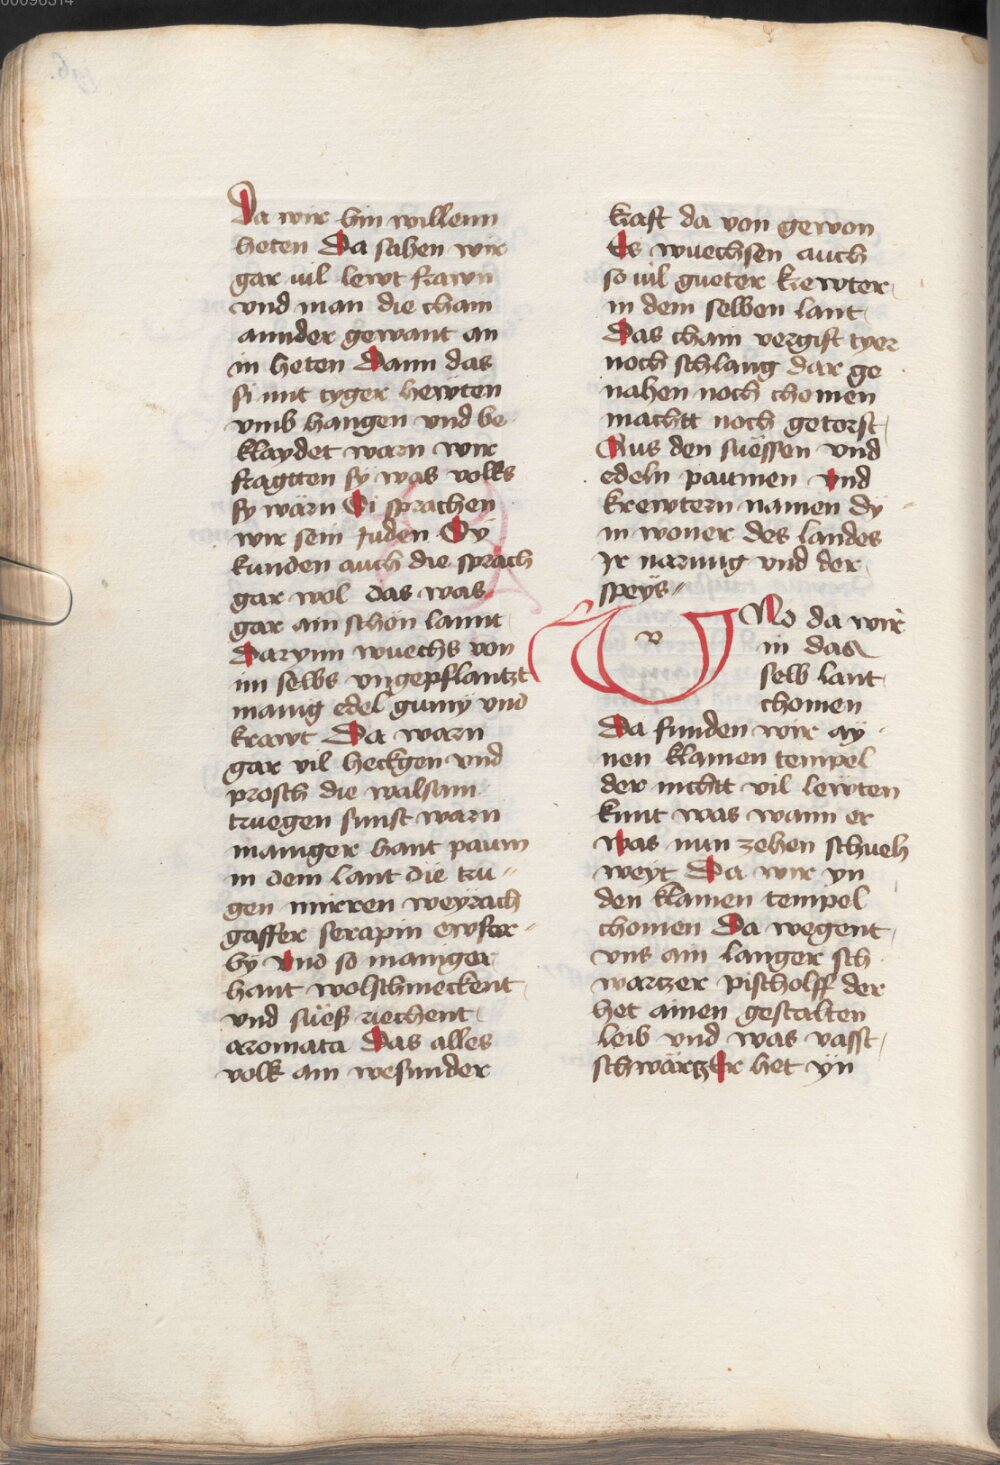 Da wir hin willenn
heten Da sahen wir
gar uil lewt frawn
vnd man die cham
annder gewant an
in heten Dann das
si mit tyger hewten
vmb hangen vnd be
klaydet warn wir
fragtten sy was volks
sy wärn Si sprachen
wir sein Juden Sy
kunden auch die sprach
gar wol das was
gar ain schön lannt
Darynn wuechs von
im selbs vngepflantzt
manig edel gumy vnd
krawt Da warn
gar vil heckgen vnd
prosch die walsam
truegen sunst warn
maniger hant paum
in dem lant die tru
gen mirren weyrach
gaffer serapin
by vnd so maniger
hant wolschmeckent
vnd süess riechent
aromata Das alles
volk ain wesunder
kraft da von gewon
Es wuechsen auch
so uil gueter krewter
in dem selben lant
Das cham vergift tyer
noch schlang dar ge
nahen noch chomen
machtt noch getorst
Aus den süessen vnd
edeln paumen vnd
krewtern namen dy
in woner des landes
Jr narung vnd der
speys
VNd da wir
in das
selb lant
chomen
Da funden wir ay
nen klainen tempel
der nichtt vil lewten
kunt was wann er
was nun zehen schueh
weyt Da wir yn
den klainen tempel
chomen Da wegent
vns ain langer sch
wartzer pischolff der
het ainen gestalten
leib vnd was vasst
schwärtz Er het yn